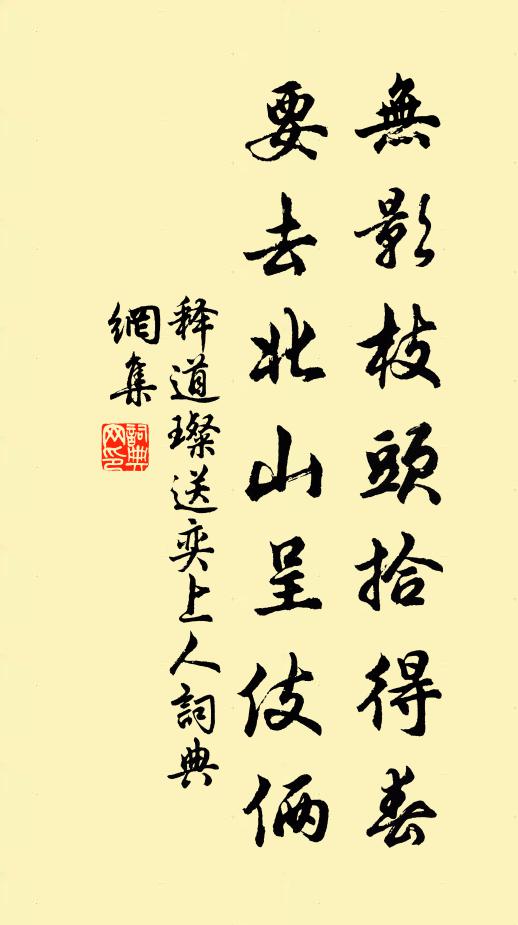 無影枝頭拾得春
要去北山呈伎倆
释道璨送奕上人詞典
網集
詞典網印